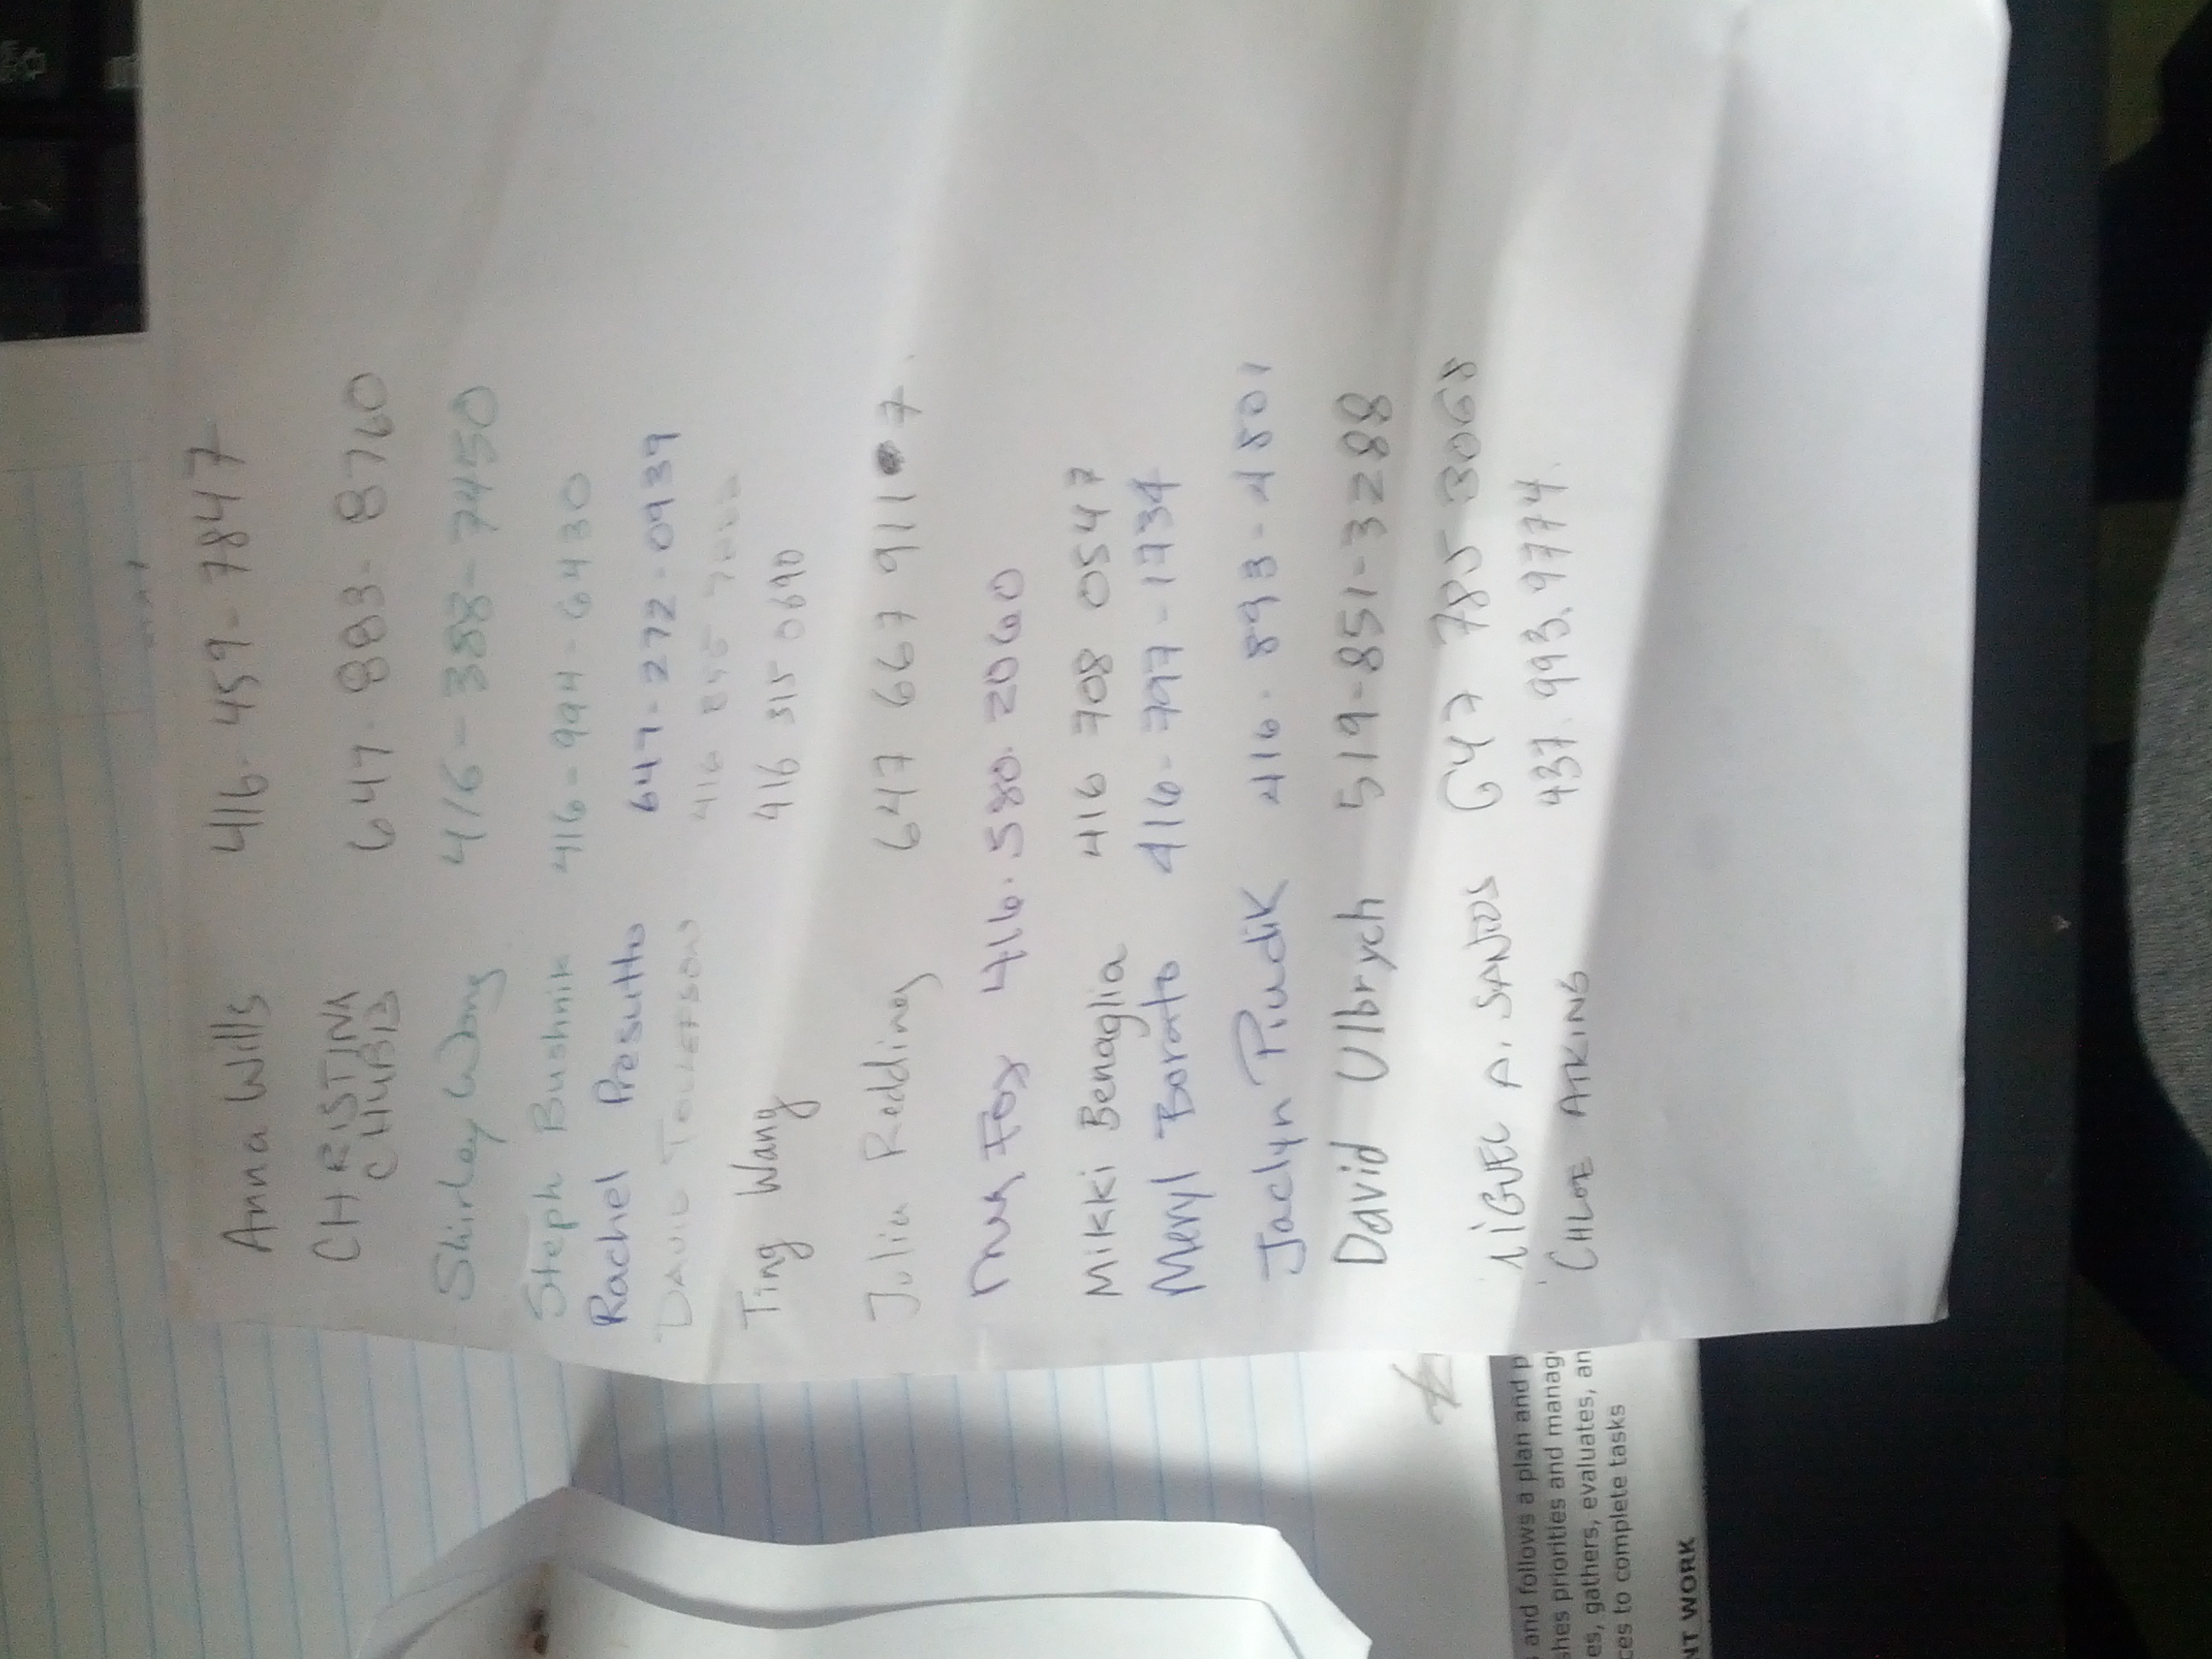 Anna Wills 416-459-7847
CHRISTINA CHUBB 647.883-8760
Shirley Wong 416-388-7450
Steph Bushnik 416-994-6430
Rachel Presutto 647-272-0939
DAVID TOLLEFSON 416 845
Ting Wang 416 315 0690
Julia Redding 647 667 9117.
Fox 416.580.2060
Mikki Benaglia 416 708 0547
Meryl Borato 416-797-1734
Jaclyn Piudik 416.893-4801
David Ulbrych 519-851-3288
MIGUEL A. SANTOS 647 785 3068
CHLOE ATKINS 437.993.9774.
and follows a plan and p
shes priorities and manag
es, gathers, evaluates, an
ces to complete tasks
NT WORK